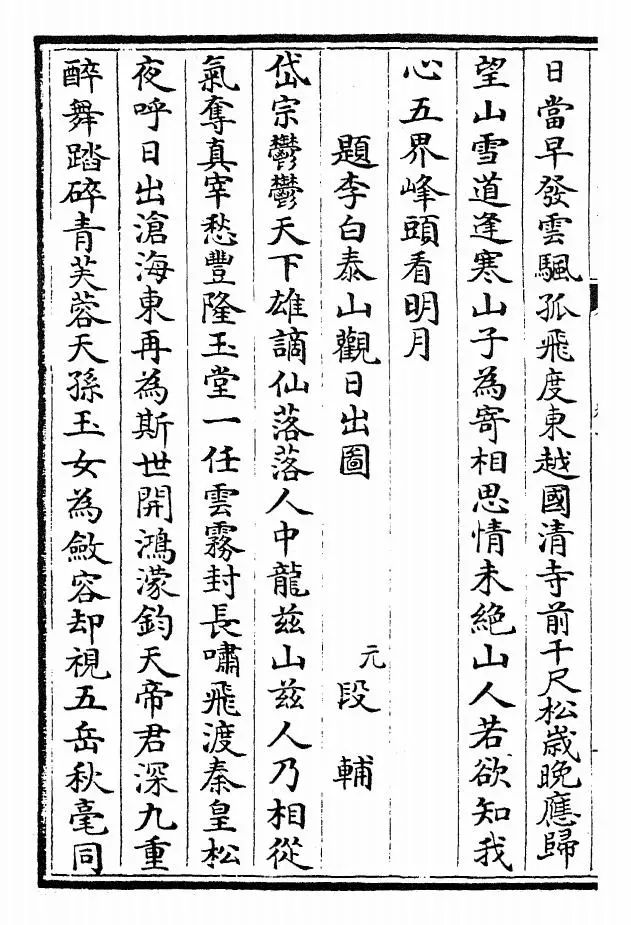 日當早發雲颿孤飛度東越國清寺前千尺松歲晚應歸
望山雪道逢寒山子為寄相思情未絕山人若欲知我
心五界峰頭看明月
題李白泰山觀日出圖
元段輔
岱宗鬱鬱天下雄謫仙落落人中龍兹山兹人乃相從
氣奪真宰愁豐隆玉堂一任雲霧封長嘯飛渡秦皇松
夜呼日出滄海東再為斯世開鴻濛鈞天帝君深九重
醉舞踏碎青芙蓉天孫玉女為斂容却視五岳秋毫同